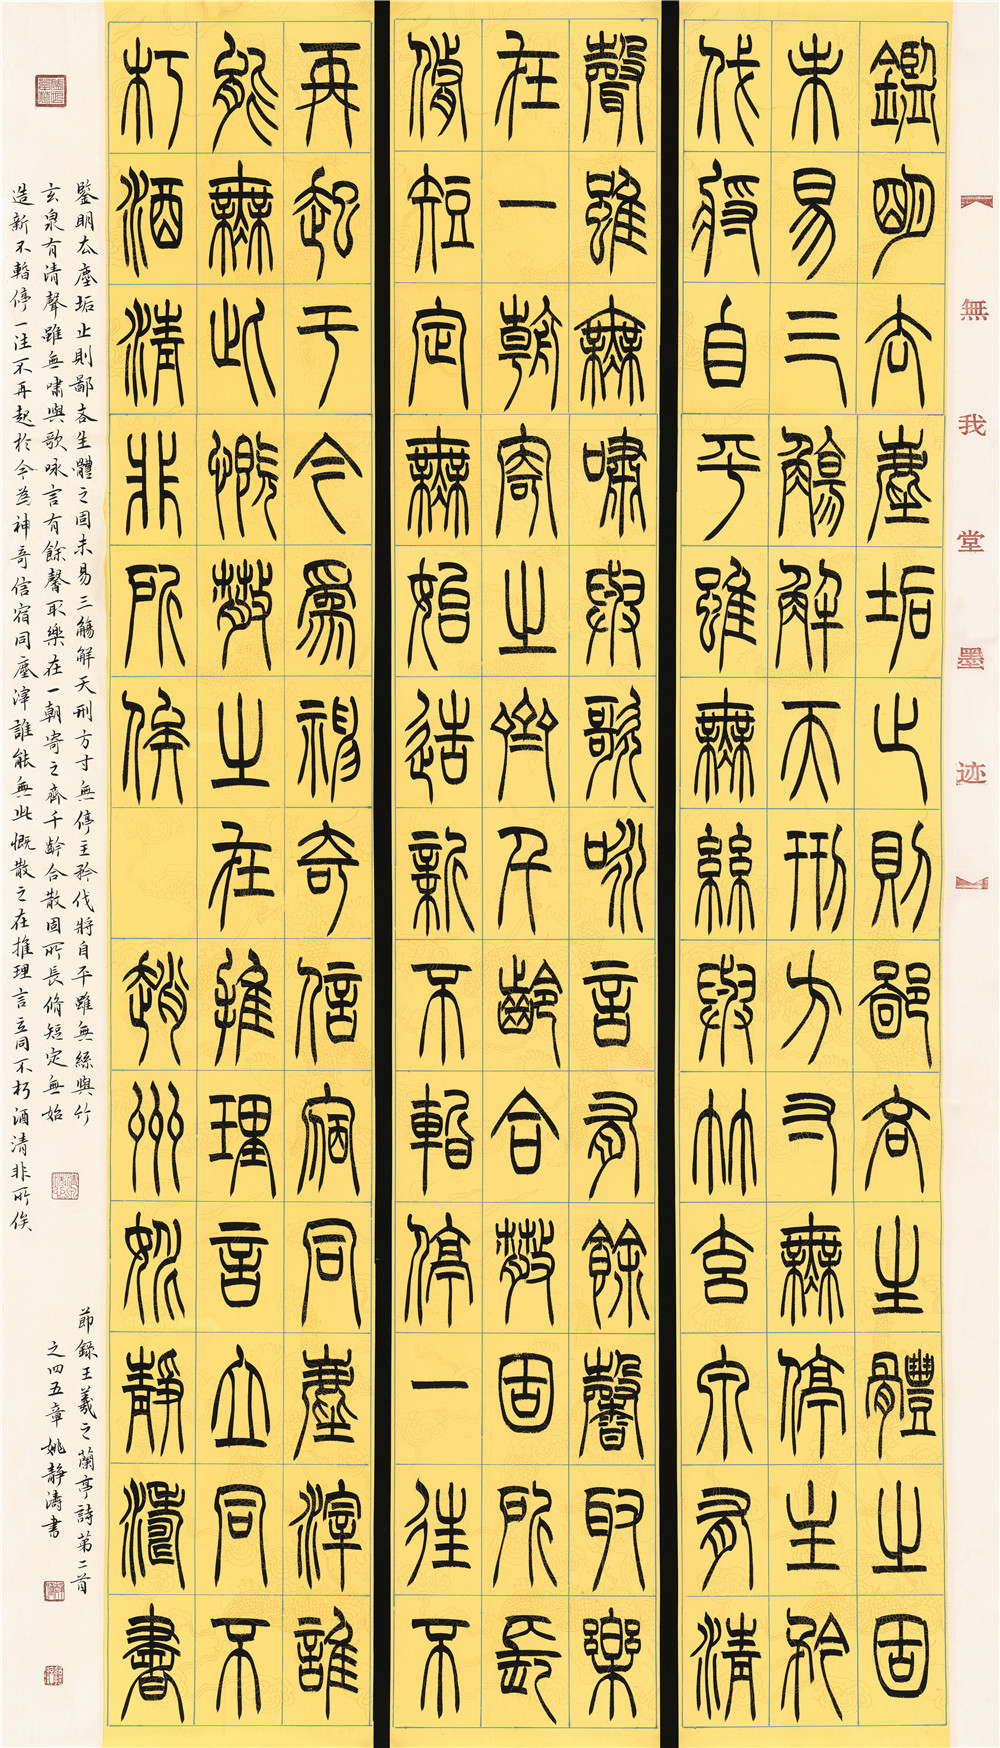 無我堂墨迹
鑑明去塵垢止則鄙吝生體之固
未易三觴解天刑方寸無停主矜
伐將自平雖無絲與竹玄泉有清
聲雖無嘯與歌咏言有餘馨取樂
在一朝寄之齊千齡合散固所長
脩短定無始造新不暫停一往不
再起于今爲神奇信宿同塵滓誰
能無此慨散之在推理言立同不
朽酒清非所俟 趙州姚靜濤書
鑒明去塵垢止則鄙吝生體之固未易三觴解天刑方寸無停主矜伐將自平雖無絲與竹
玄泉有清聲雖無嘯與歌咏言有餘馨取樂在一朝寄之齊千齡合散固所長脩短定無始
造新不暫停一往不再起於今為神奇信宿同塵滓誰能無此慨散之在推理言立同不朽酒清非所俟
節錄王羲之蘭亭詩第二首
之四五章姚静濤書